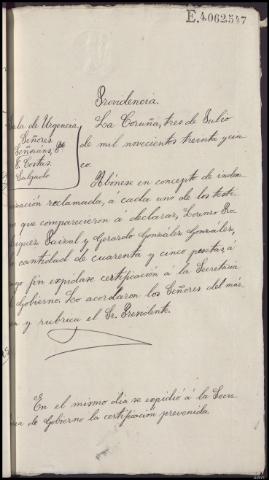 E.4062547
Providencia.
Sala de Urgencia
Señores
Señoráns, Pte
F. Costas
Salgado
La Coruña, tres de Julio
de mil novecientos treinta y cin
co.
Abónese en concepto de indem
nización reclamada, á cada uno de los testi
que comparecieron a declarar,
y Gerardo González González,
cantidad de cuarenta y cinco pesetas, á
fin expídase certificación á la Secretaria
Gobierno. Lo acordaron los Señores del már
y rubrica el Sr. Presidente.
En el mismo dia se expidió á la Secre
de Gobierno la certificacion prevenida.